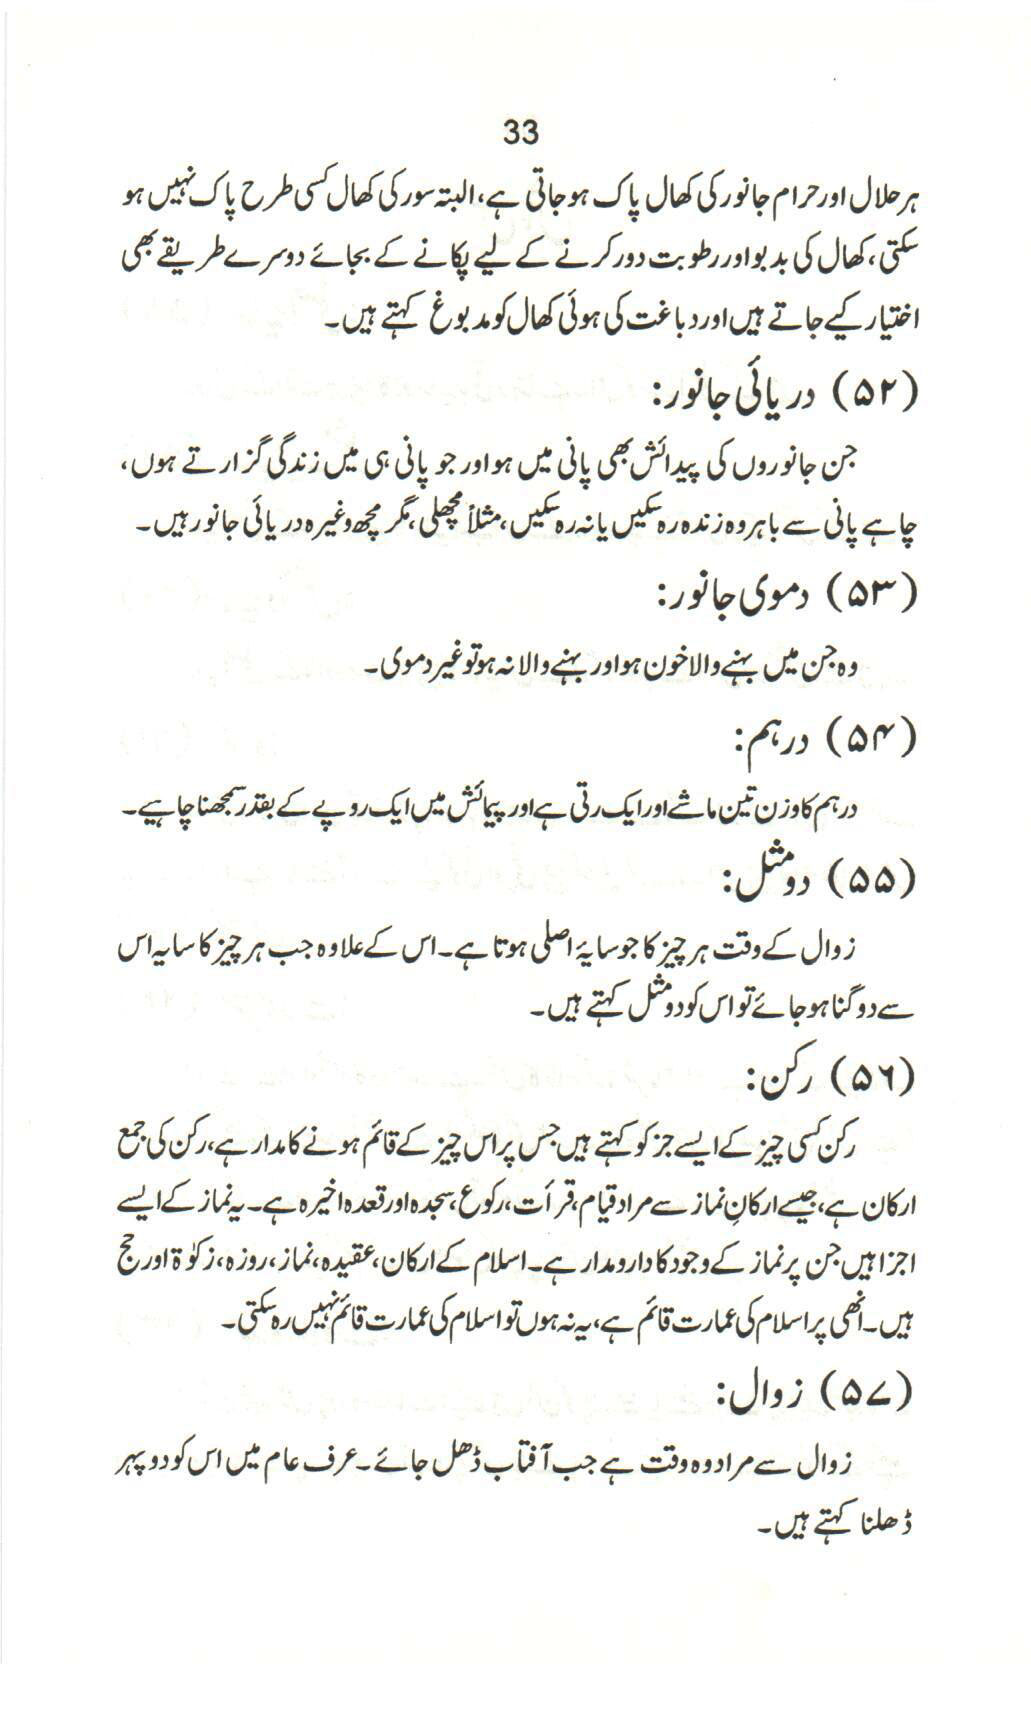 33
ہر حلال اور حرام جانور کی کھال پاک ہو جاتی ہے، البتہ سور کی کھال کسی طرح پاک نہیں ہو
سکتی، کھال کی بدبو اور رطوبت دور کرنے کے لیے پکانے کے بجائے دوسرے طریقے بھی
اختیار کیے جاتے ہیں اور دباغت کی ہوئی کھال کو مدبوغ کہتے ہیں۔
(۵۲) دریائی جانور:
جن جانوروں کی پیدائش بھی پانی میں ہو اور جو پانی ہی میں زندگی گزارتے ہوں،
چاہے پانی سے باہر وہ زندہ رہ سکیں یا نہ رہ سکیں، مثلاً مچھلی، مگر مچھ وغیرہ دریائی جانور ہیں۔
(۵۳) دموی جانور:
وہ جن میں بہنے والا خون ہو اور بہنے والا نہ ہو تو غیر دموی۔
(۵۴) درہم:
درہم کا وزن تین ماشے اور ایک رتی ہے اور پیمائش میں ایک روپے کے بقدر سمجھنا چاہیے۔
(۵۵) دو مثل:
زوال کے وقت ہر چیز کا جو سایۂ اصلی ہوتا ہے۔ اس کے علاوہ جب ہر چیز کا سایہ اس
سے دو گنا ہو جائے تو اس کو دو مثل کہتے ہیں۔
(۵۶) رکن:
رکن کسی چیز کے ایسے جز کو کہتے ہیں جس پر اس چیز کے قائم ہونے کا مدار ہے، رکن کی جمع
ارکان ہے، جیسے ارکانِ نماز سے مراد قیام، قرأت، رکوع، سجدہ اور قعدہ اخیرہ ہے۔ یہ نماز کے ایسے
اجزا ہیں جن پر نماز کے وجود کا دارومدار ہے۔ اسلام کے ارکان، عقیدہ، نماز، روزہ، زکوٰۃ اور حج
ہیں۔ انھی پر اسلام کی عمارت قائم ہے، یہ نہ ہوں تو اسلام کی عمارت قائم نہیں رہ سکتی۔
(۵۷) زوال:
زوال سے مراد وہ وقت ہے جب آفتاب ڈھل جائے۔ عرف عام میں اس کو دوپہر
ڈھلنا کہتے ہیں۔